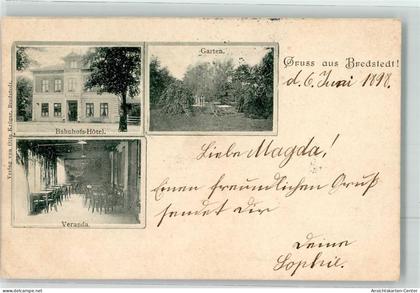 Garten.
Gruss aus Bredstedt!
d. 6. Juni 1898.
Bahnhofs-Hôtel.
Liebe Magda!
Einen freundlichen Gruß
sendet dir
Veranda.
Deine
Sophie.
Verlag von Otto Bredstedt.
www.ansichtskartenversand.com
Ansichtskarten-Center